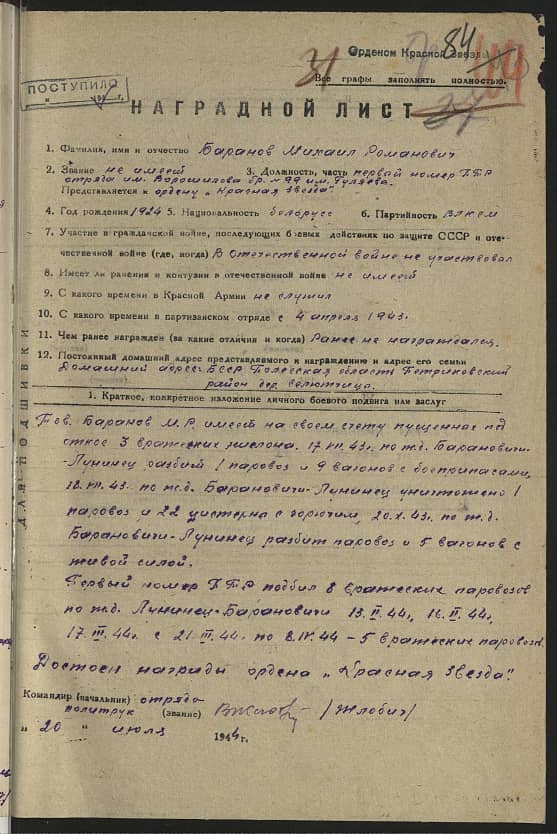 31 84 44
Орденом Красной Звезды
Все графы заполнять полностью.
37
ПОСТУПИЛО
НАГРАДНОЙ ЛИСТ
1. Фамилия, имя и отчество Баранов Михаил Романович
2. Звание не имеет 3. Должность, часть первый номер ПТР
отряда им. Ворошилова бр. №99 им. Гуляева.
Представляется к ордену „Красная Звезда"
4. Год рождения 1924 5. Национальность белорусс 6. Партийность ВЛКСМ
7. Участие в гражданской войне, последующих боевых действиях по защите СССР и оте-
чественной войне (где, когда) В Отечественной войне не участвовал
8. Имеет ли ранения и контузии в отечественной войне не имеет
9. С какого времени в Красной Армии не служил
10. С какого времени в партизанском отряде с 4 апреля 1943г.
11. Чем ранее награжден (за какие отличия и когда) Ранее не награждался.
12. Постоянный домашний адрес представляемого к награждению и адрес его семьи
Домашний адрес: БССР Полесская область Петриковский
район дер.
1. Краткое, конкретное изложение личного боевого подвига или заслуг
Тов. Баранов М.Р. имеет на своем счету пущенных под
откос 3 вражеских эшелона. 17.VII.43г. по ж.д. Барановичи-
-Лунинец разбит 1 паровоз и 9 вагонов с боеприпасами,
18.VII.43г. по ж.д. Барановичи-Лунинец уничтожено 1
паровоз и 22 цистерны с горючим, 20.X.43г. по ж.д.
Барановичи-Лунинец разбит паровоз и 5 вагонов с
живой силой.
Первый номер ПТР подбил 8 вражеских паровозов
по ж.д. Лунинец-Барановичи 13.II.44г, 16.II.44г,
17.III.44г. с 21.III.44г. по 2.IV.44 - 5 вражеских паровозов.
Достоен награды ордена „Красная Звезда".
Командир (начальник) отряда
политрук (звание) /Жлобич/
„20" июля 1944г.
ДЛЯ ПОДШИВКИ